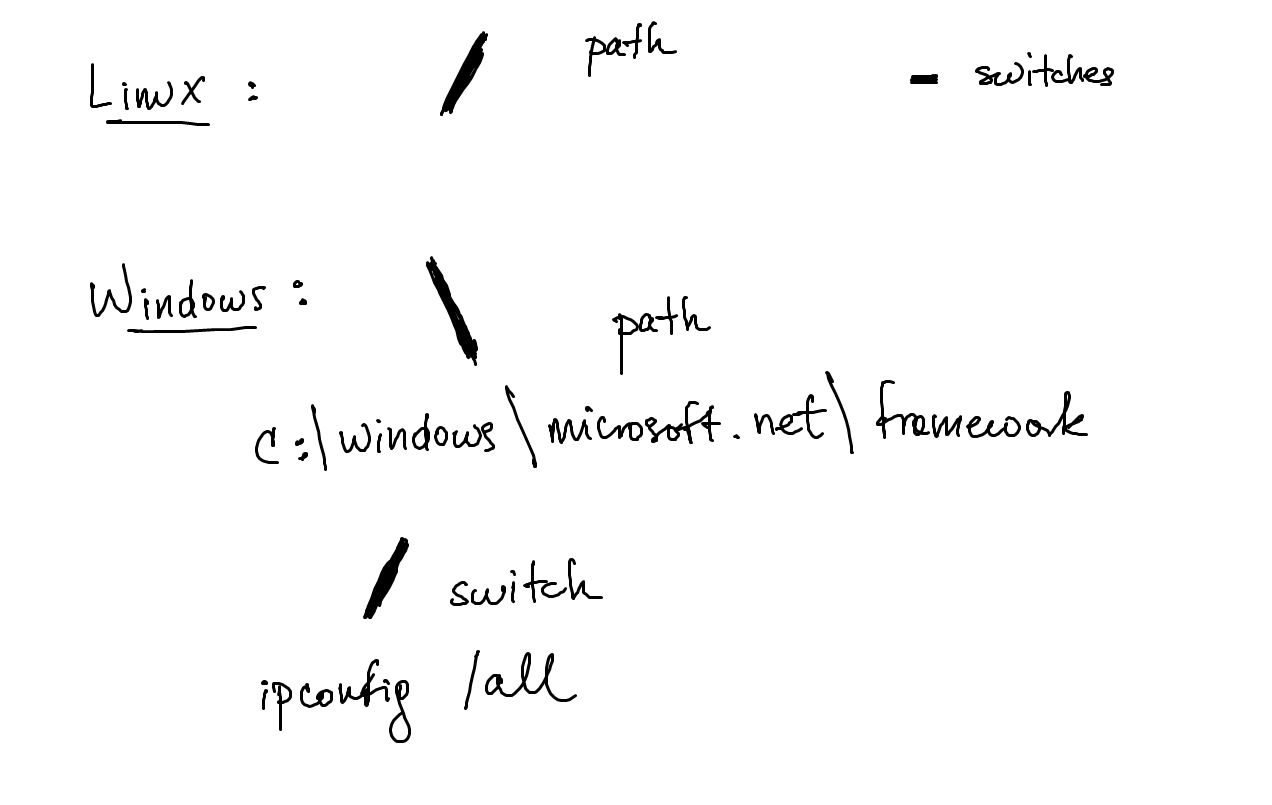 Linux : / path - switches
Windows : \ path
C:\windows\microsoft.net\framework
/ switch
ipconfig /all